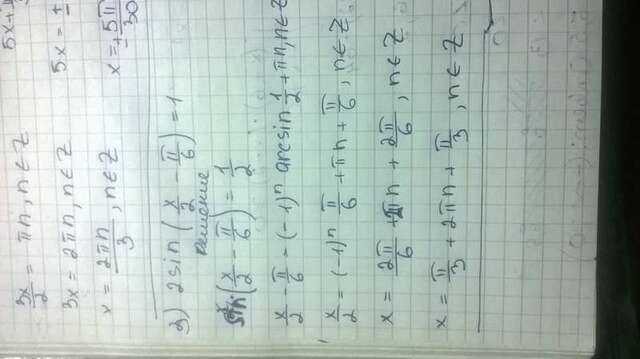 3x/2 = πn, n∈Z
3x = 2πn, n∈Z
x = 2πn/3, n∈Z
5x =
x = ± 5π/30
3) 2sin(x/2 - π/6) = 1
Решение
sin(x/2 - π/6) = 1/2
x/2 - π/6 = (-1)ⁿ arcsin 1/2 + πn, n∈Z
x/2 = (-1)ⁿ π/6 + πn + π/6, n∈Z
x = 2π/6 + 2πn + 2π/6, n∈Z
x = π/3 + 2πn + π/3, n∈Z